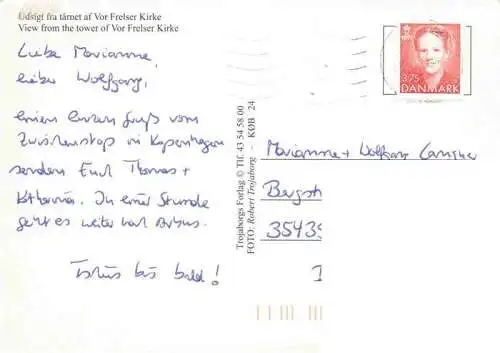 Udsigt fra tårnet af Vor Frelser Kirke
View from the tower of Vor Frelser Kirke
Liebe Marianne,
lieber Wolfgang,
einen kurzen Gruß vom
Zwischenstop in Kopenhagen
senden Euch Thomas +
Katharina. In einer Stunde
geht es weiter nach
Tschüs bis bald!
Trojaborgs Forlag © Tlf. 43 54 58 00
FOTO: Robert Trojaborg - KØB 24
3.75
DANMARK
Marianne + Wolfgang
Bergst
35435